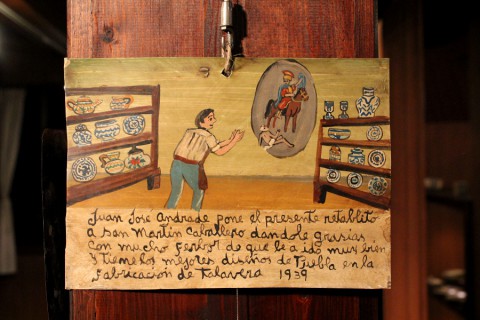 Juan Jose Andrade pone el presente retablito
a san Martin Caballero dandole grasias
con mucho ferbor de que le a ido muy bien
y tiene los mejores diseños de Puebla en la
fabricasion de talavera 1939